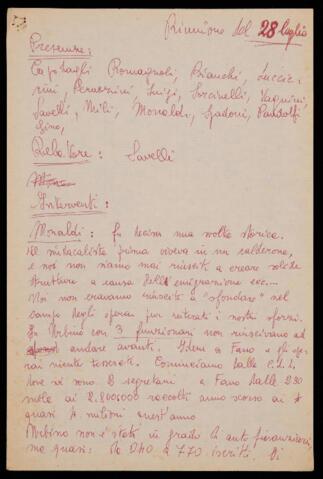 Riunione del 28 luglio
Presenze:
Capotagli Romagnoli, Bianchi, Lucce-
rini, Peruzzini, Luigi, Sorcinelli, Vaquini,
Savelli, Mili, Monaldi, Spadoni, Pandolfi
Gino,
Relatore: Savelli
Interventi:
Monaldi: fu decisa una svolta storica.
Il sindacalista prima viveva in un calderone,
e noi non siamo mai riusciti a creare solide
strutture a causa dell'emigrazione ecc...
Noi non eravamo riusciti a "sfondare" nel
campo degli operai pur reiterati i nostri sforzi.
In Urbino con 3 funzionari non riuscivano ad
andare avanti. Idem a Fano e gli ope-
rai niente tesserati. Cominciamo dalle C.d.L.
dove vi sono 8 segretari a Fano dalle 230
mila ai 2.800.000 raccolte anno scorso ai
quasi 4 milioni quest'anno
Urbino non è stata in grado di auto finanziarsi
ma quasi: da 240 a 770 iscritti. Di